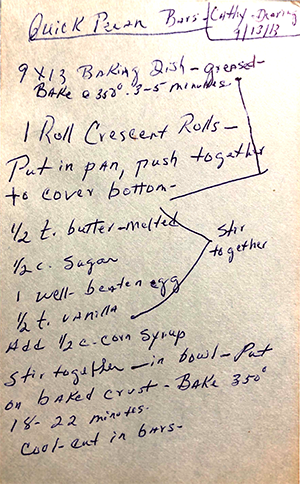 Quick Pecan Bars - Cathy - Dearing
9/13/13
9 x 13 Baking Dish - greased -
Bake @ 350° - 3-5 minutes.
1 Roll Crescent Rolls -
Put in pan, push together
to cover bottom -
1/2 t. butter - melted
1/2 c. sugar
Stir
together
1 well - beaten egg
1/2 t. vanilla
Add 1/2 c. corn syrup
Stir together - in bowl - Put
on baked crust - Bake 350°
18 - 22 minutes.
Cool - cut in bars -